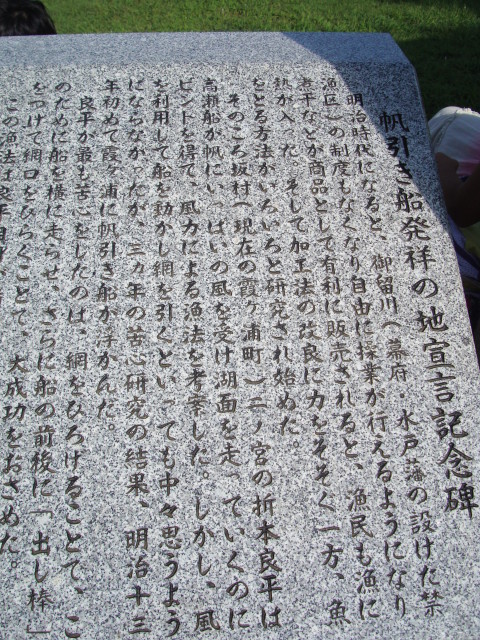 帆引き船発祥の地宣言記念碑
明治時代になると、御留川(幕府・水戸藩の設けた禁
漁区)の制度もなくなり自由に操業が行えるようになり
煮干などが商品として有利に販売されると、漁民も漁に
熱が入った。そして加工法の改良に力をそそぐ一方、魚
をとる方法がいろいろと研究され始めた。
そのころ坂村(現在の霞ヶ浦町)二ノ宮の折本良平は
高瀬船が帆にいっぱいの風を受け湖面を走っていくのに
ヒントを得て、風力による漁法を考案した。しかし、風
を利用して船を動かし網を引くといっても中々思うよう
にならなかったが、三カ年の苦心研究の結果、明治十三
年初めて霞ヶ浦に帆引き船が浮かんだ。
良平が最も苦心をしたのは、網をひろげることで、こ
のために船を横に走らせ、さらに船の前後に「出し棒」
をつけて網口をひらくことで、大成功をおさめた。
この漁法は良平自身が